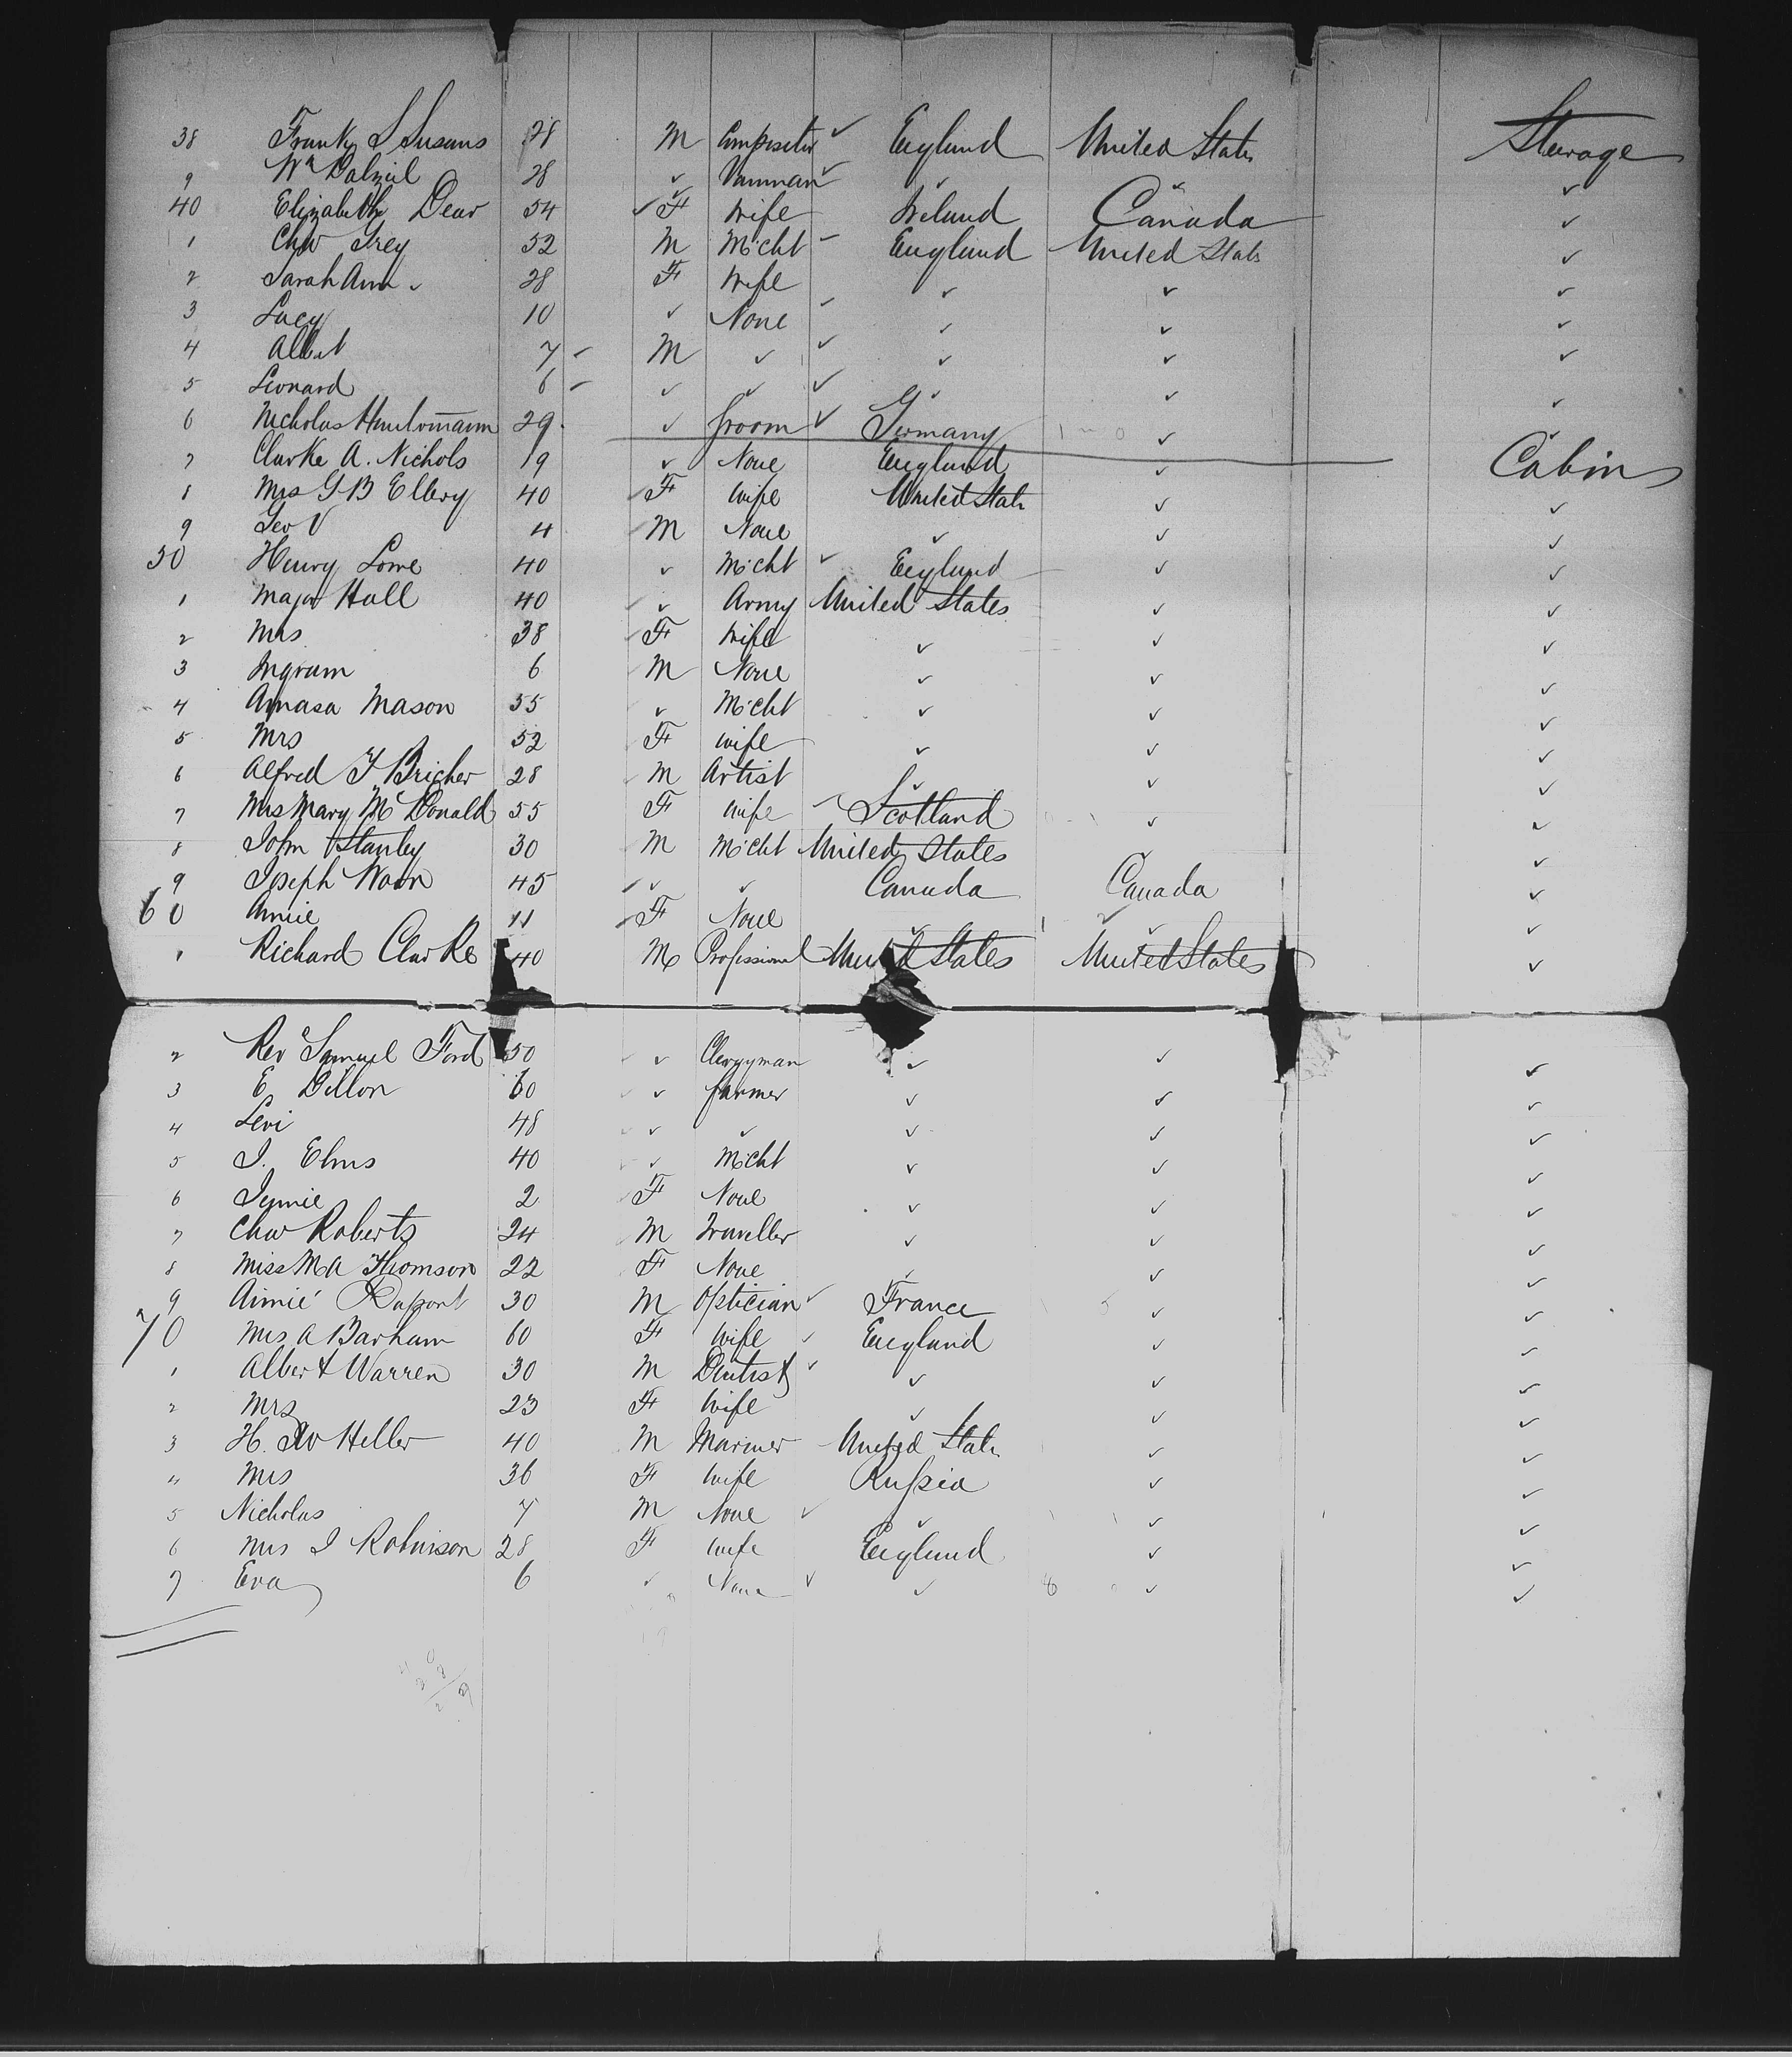 38 Frank S Susans 28 M Compositor ✓ England United States Steerage
9 Wm Dalziel 28 ✓ Vanman ✓ ✓ ✓ ✓
40 Elizabeth Dear 54 ✓ F Wife Ireland Canada ✓
1 Chas Frey 52 M Mcht England United States ✓
2 Sarah Ann ✓ 28 F Wife ✓ ✓ ✓
3 Lucy 10 ✓ None ✓ ✓ ✓
4 Albert 7 M ✓ ✓ ✓ ✓ ✓
5 Leonard 6 ✓ ✓ ✓ ✓ ✓ ✓
6 Nicholas 29 ✓ Groom ✓ Germany ✓ ✓
7 Clarke A. Nichols 19 ✓ None England ✓ Cabin
8 Mrs G B Ellery 40 F Wife United States ✓ ✓
9 Geo V 4 M None ✓ ✓ ✓
50 Henry Lowe 40 ✓ Mcht ✓ England ✓ ✓
1 Major Hall 40 ✓ Army United States ✓ ✓
2 Mrs 38 F Wife ✓ ✓ ✓
3 Ingram 6 M None ✓ ✓ ✓
4 Amasa Mason 55 ✓ Mcht ✓ ✓ ✓
5 Mrs 52 F Wife ✓ ✓ ✓
6 Alfred T Bricher 28 M Artist ✓ ✓ ✓
7 Mrs Mary McDonald 55 F Wife Scotland ✓ ✓
8 John Stanley 30 M Mcht United States ✓ ✓
9 Joseph 45 ✓ ✓ Canada Canada ✓
60 Annie 11 F None ✓ ✓ ✓
1 Richard Clarke 40 M Professional United States United States ✓
2 Rev Samuel Ford 50 ✓ Clergyman ✓ ✓ ✓
3 E Dillon 60 ✓ farmer ✓ ✓ ✓
4 Levi 48 ✓ ✓ ✓ ✓ ✓
5 J. Elms 40 ✓ Mcht ✓ ✓ ✓
6 Jennie 2 F None ✓ ✓ ✓
7 Chas Roberts 24 M Traveller ✓ ✓ ✓
8 Miss M A Thomson 22 F None ✓ ✓ ✓
9 Aimié Dupont 30 M Optician ✓ France ✓ ✓
70 Mrs A Barham 60 F Wife ✓ England ✓ ✓
1 Albert Warren 30 M Dentist ✓ ✓ ✓ ✓
2 Mrs 23 F Wife ✓ ✓ ✓
3 H. W Heller 40 M Mariner United States ✓ ✓
4 Mrs 36 F Wife Russia ✓ ✓
5 Nicholas 7 M None ✓ ✓ ✓ ✓
6 Mrs J Robinson 28 F Wife England ✓ ✓
7 Eva 6 ✓ None ✓ ✓ ✓ ✓